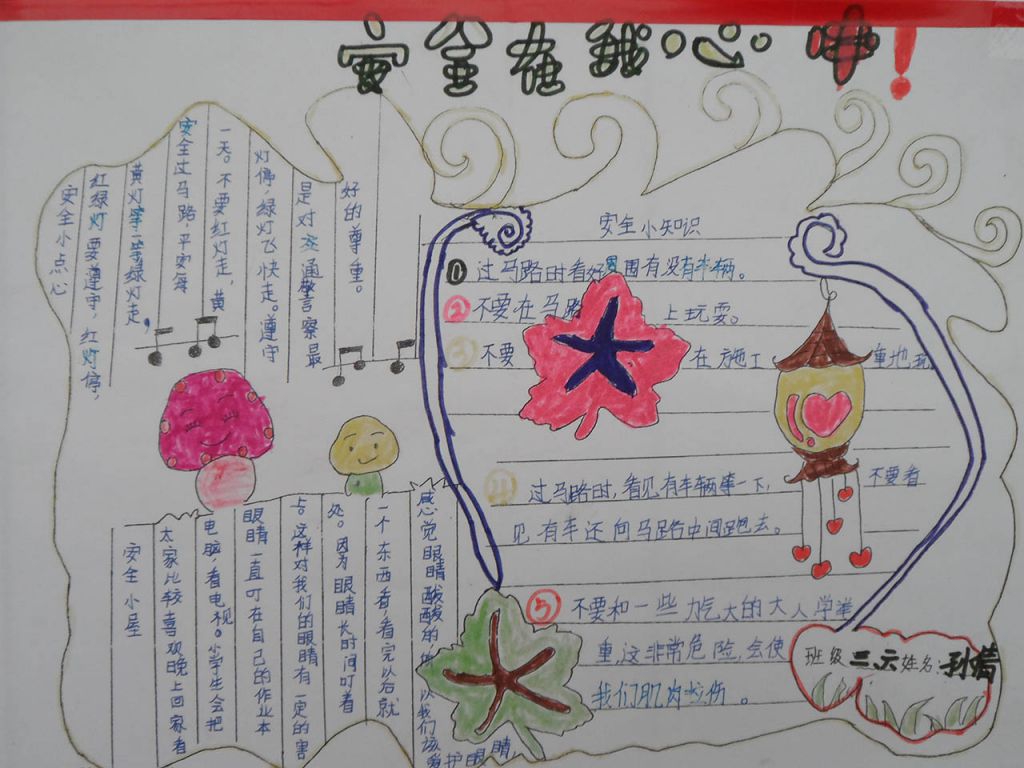 安全在我心中!
安全小点心
红绿灯要遵守，红灯停，
黄灯等一等绿灯走，
安全过马路，平安每
一天。不要红灯走，黄
灯停，绿灯飞快走。遵守
是对交通警察最
好的尊重。
安全小屋
太家比较喜观晚上回家看
电脑看电视。小学生会把
眼睛一直叮在自己的作业本
这样对我们的眼睛有一定的害
处。因为眼睛长时间叮着
一个东西看看完以后就
感觉眼睛酸酸的 以我们该
爱护眼睛，
安全小知识
① 过马路时看好周围有没有车辆。
② 不要在马路上玩耍。
③ 不要在施工重地玩
④ 过马路时，看见有车辆等一下，不要看
见有车还向马路中间跑去。
⑤ 不要和一些力气大的大人学举
重，这非常危险，会使
我们肌肉拉伤。
班级 三、六 姓名：孙倩